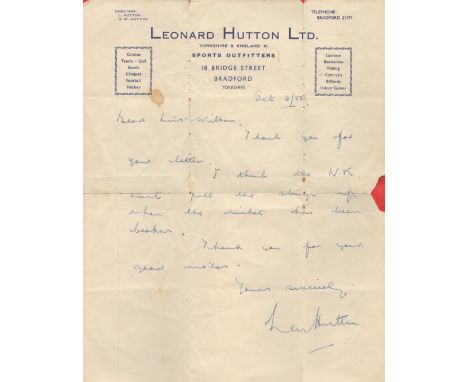 DIRECTORS:
L. HUTTON
D. M. HUTTON
TELEPHONE:
BRADFORD 21171
LEONARD HUTTON LTD.
YORKSHIRE & ENGLAND XI
SPORTS OUTFITTERS
18 BRIDGE STREET
BRADFORD
YORKSHIRE
Cricket
Tennis - Golf
Bowls
Croquet
Football
Hockey
Lacrosse
Badminton
Fishing
Gymnasia
Billiards
Indoor Games
Oct 6/55
Dear Miss Wilson.
Thank you for
your letter.
I think the W.K.
must pull the stumps up
when the wicket has been
broken.
Thank you for your
good wishes.
Yours sincerely.
Len Hutton